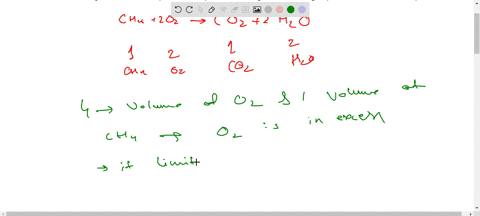 CH4 + 2O2 → CO2 + 2 H2O
1 2 1 2
CH4 O2 CO2 H2O
4 → volume of O2 & 1 volume of
CH4 → O2 is in excess
→ if limit